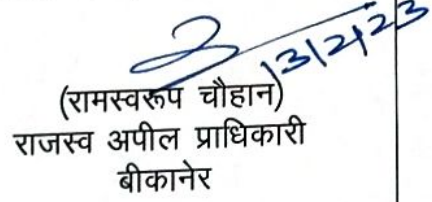 13/2/23
(रामस्वरूप चौहान)
राजस्व अपील प्राधिकारी
बीकानेर